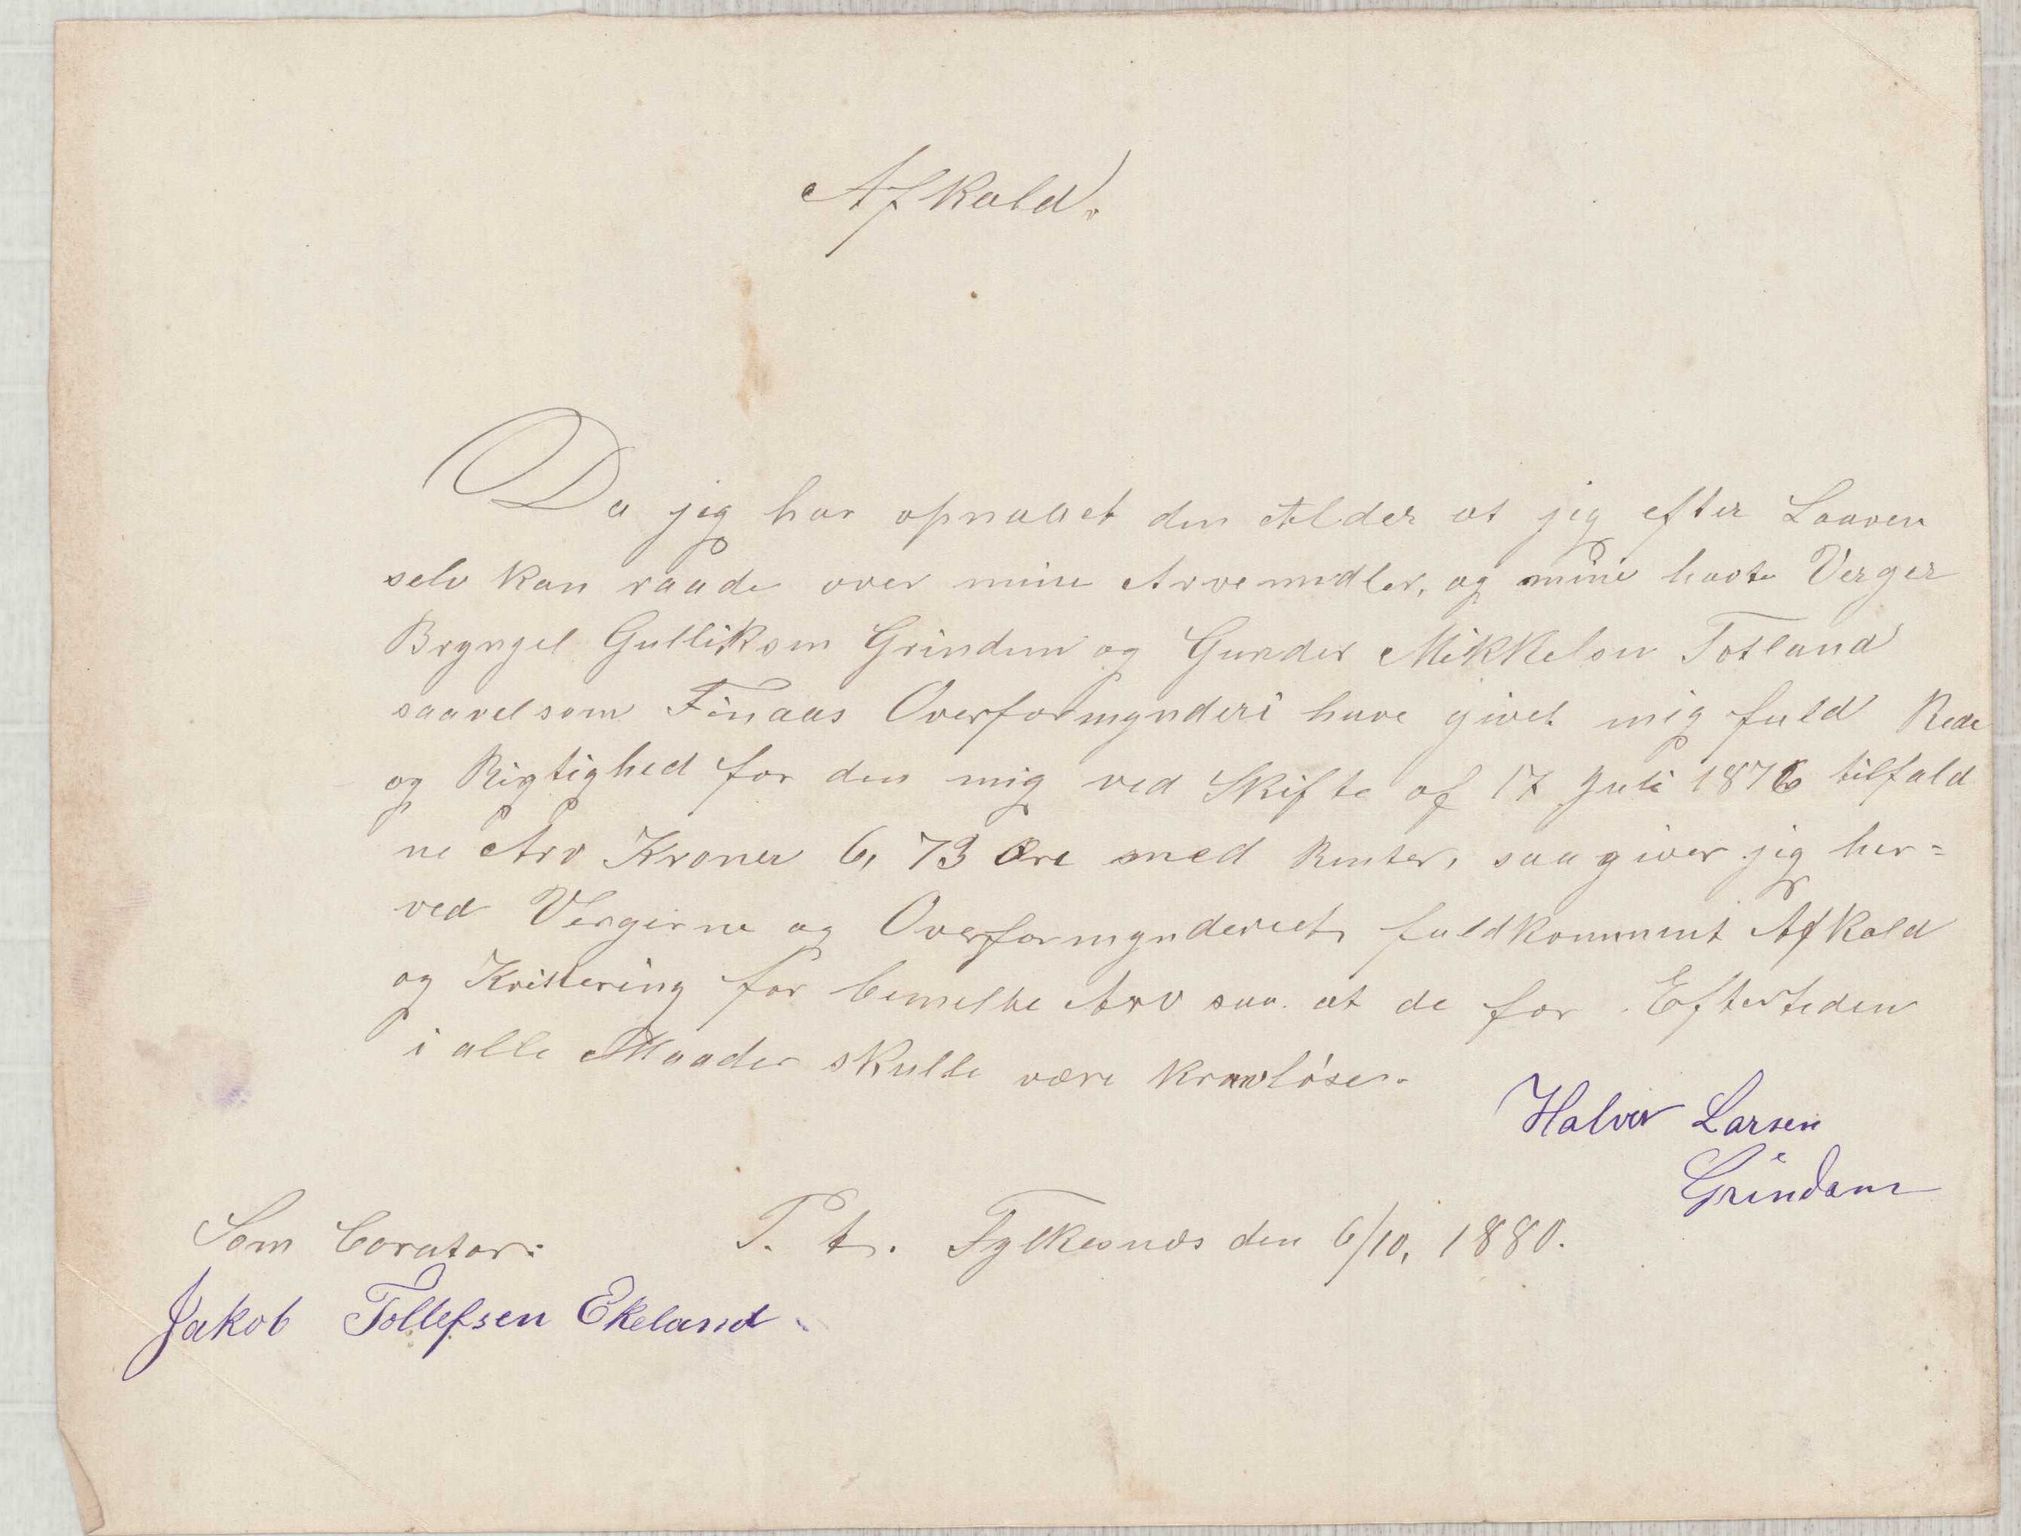 Afkald.
Da jeg har opnaaet den Alder at jeg efter Loven
selv kan raade over mine Arvemidler, og mine havte Verger
Bryngel Gulliksen Grindem og Gunder Mikkelsen Totland
saavelsom Finaas Overformynderi have givet mig fuld Rede
og Rigtighed for den mig ved Skifte af 17 Juli 1876 tilfald
ne Arv Kroner 6, 73 Øre med Renter, saa giver jeg her=
ved Vergerne og Overformynderiet fuldkomment Afkald
og Kvittering for bemelte Arv saa at de for Eftertiden
i alle Maader skulle være kravløse.
Halvor Larsen
Grindem
Som Corator: T. t. Fylkesnæs den 6/10, 1880.
Jakob Tollefsen Ekeland